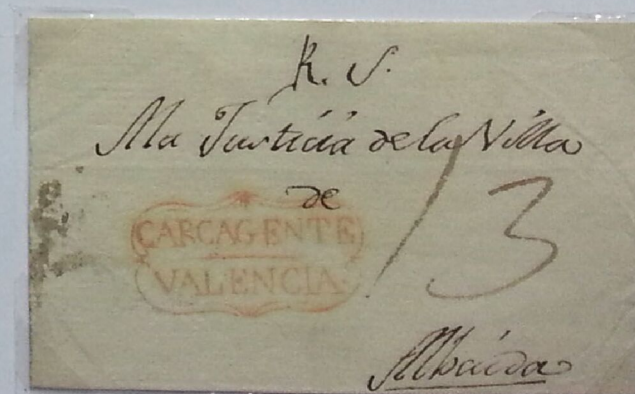 R. S.
A la Justicia de la Villa
de
CARCAGENTE
VALENCIA.
13
Albaida